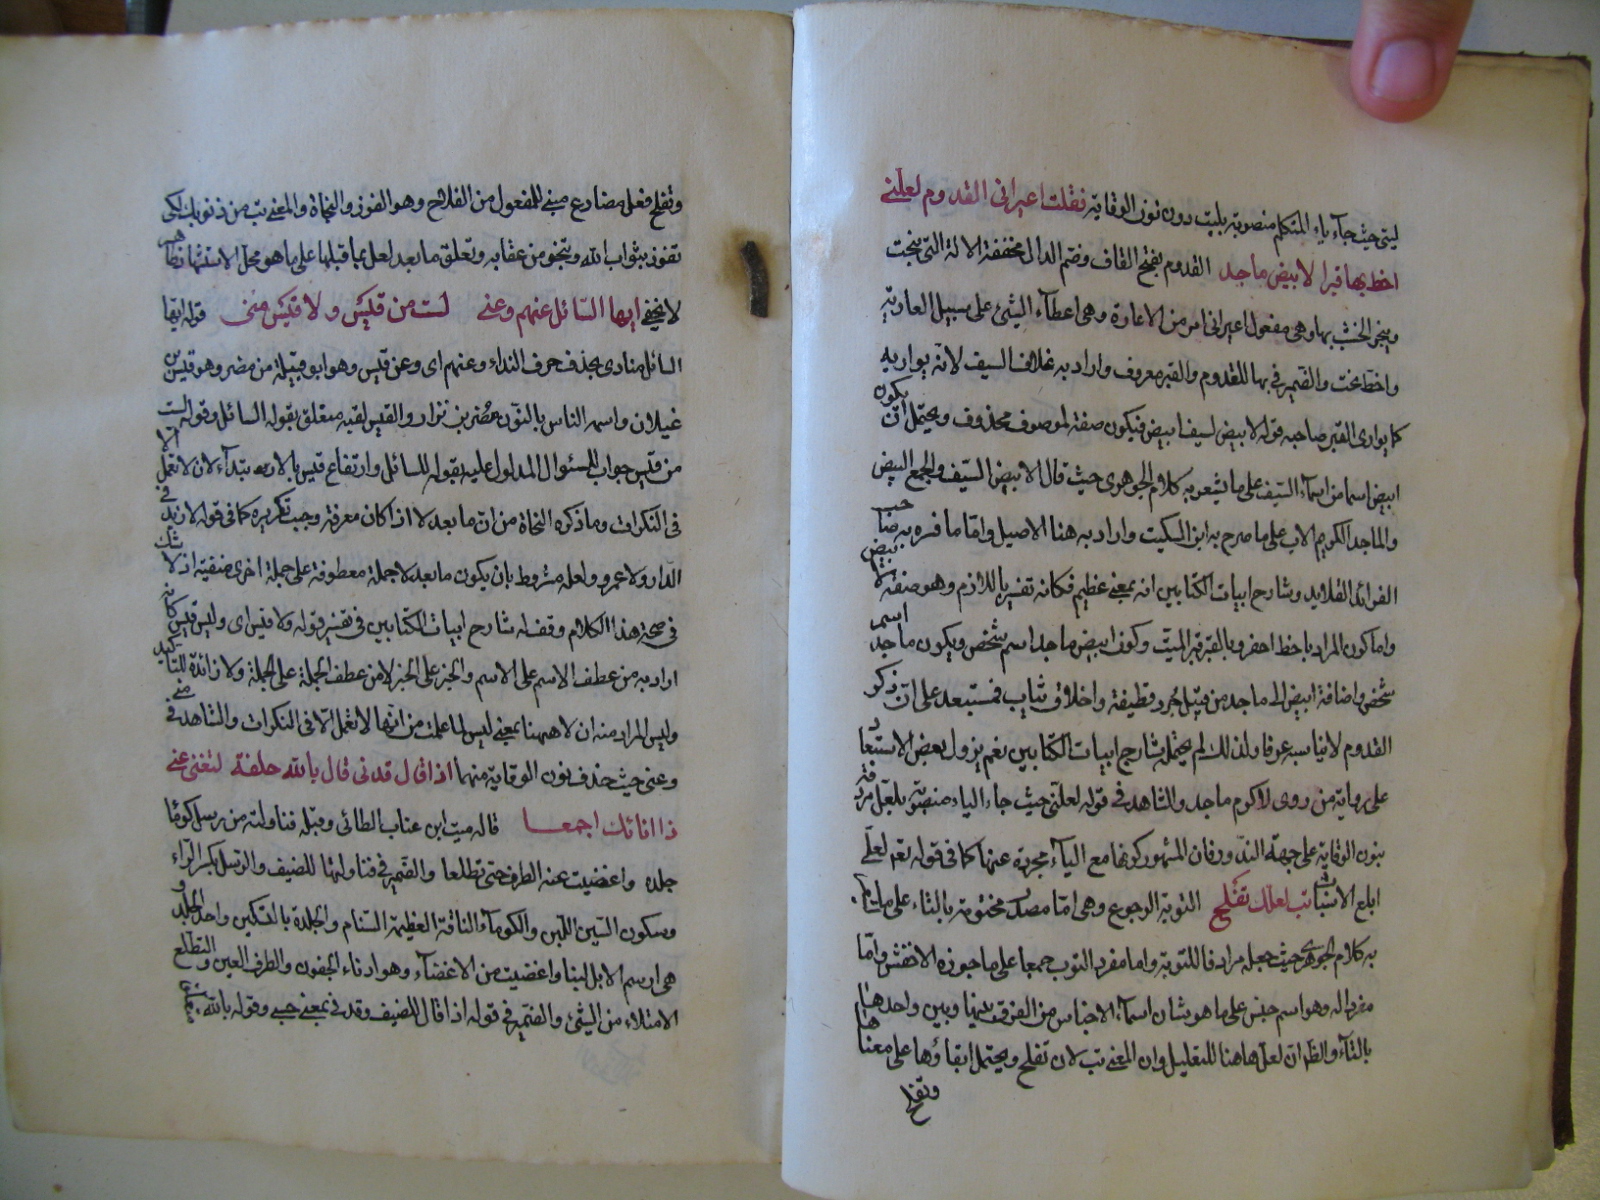 ليتي حيث جاء ياء المتكلم منصوبة بليت دون نون الوقاية فقلت اعيراني القدوم لعلني
اخط بها قبرا لابيض ماجد القدوم بفتح القاف وضم الدال مخففة الالة التي ينحت
وينجر الخشب بها وهي مفعول اعيراني امر من الاعارة وهي اعطاء الشئ على سبيل العارية
واخط انحت والضمير في بها للقدوم والقبر معروف واراد به غلاف السيف لانه يواريه
كما يوارى القبر صاحبه قوله لابيض لسيف ابيض فيكون صفة لموصوف محذوف ويحتمل ان يكون
ابيض اسما من اسماء السيف على ما يشعر به كلام الجوهري حيث قال الابيض السيف والجمع البيض
والماجد الكريم الاب على ما صرح به ابن السكيت واراد به هنا الاصيل واما ما فسره به صاحب
الفرائد القلايد وشارح ابيات الكتابين انه بمعنى عظيم فكانه تفسير باللازم وهو صفة لابيض
واما كون المراد باخط احفر وبالقبر قبر الميت وكون ابيض ماجد اسم شخص ويكون ماجد اسم
شخص واضافة ابيض الى ماجد من قبيل جرد قطيفة واخلاق ثياب فمستبعد على ان ذكر
القدوم لا يناسبه عرفا ولذلك لم يحمله شارح ابيات الكتابين نعم يزول بعض الاستبعاد
على رواية من روى لاكرم ماجد والشاهد في قوله لعلني حيث جاء الياء منصوبة بلعل مردفة
بنون الوقاية على جهة الندور فان المشهور كونها مع الياء مجردة عنها كما في قوله تعم لعلي
ابلغ الاسباب تب لعلك تفلح التوبة الرجوع وهي اما مصدر مختومة بالتاء على ما
به كلام الجوهري حيث جعله مرادفا للتوبة واما مفرد التوب جمعا على ما جوزه الاخفش واما
مفرد له وهو اسم جنس على ما هو شان اسماء الاجناس من الفرق بينها وبين واحدها
بالتاء والظ ان لعل هاهنا للتعليل وان المعنى تب لان تفلح ويحتمل ابقاؤها على معناها
وتفلح
وتفلح فعل مضارع مبني للمفعول من الفلاح وهو الفوز والنجاة والمعنى تب من ذنوبك لكى
تفوز بثواب الله وتنجو من عقابه وتعلق ما بعد لعل بما قبلها على ما هو محل الاستشهاد ظاهر
لا يخفى ايها السائل عنهم وعني لست من قيس ولا قيس مني قوله ايها
السائل منادى بحذف حرف النداء وعنهم اى وعن قيس وهو ابو قبيلة من مضر وهو قيس بن
غيلان واسمه الناس بالنون مضر بن نزار والقيس لقبه متعلق بقوله السائل وقوله لست
من قيس جواب للسئوال المدلول عليه بقوله السائل وارتفاع قيس بالابتداء لان لا تعمل الا
في النكرات وما ذكره النحاة من ان ما بعد لا اذا كان معرفة وجب تكريره كما في قوله لا زيد في
الدار ولا عمرو ولعله مشروط بان يكون ما بعد لا جملة معطوفة على جملة اخرى منفية اذ لا شك
في صحة هذا الكلام وقف له شارح ابيات الكتابين في تفسير قوله ولا قيس اى وليس قيس كانه
اراد به من عطف الاسم على الاسم والخبر على الخبر لا من عطف الجملة على الجملة ولا زائدة للتاكيد
وليس المراد منه ان لا ههنا بمعنى ليس لما علمت من انها لا تعمل الا في النكرات والشاهد في مني
وعني حيث حذف نون الوقاية منهما اذا قال قدني قال بالله حلفة لتغني عني
ذا انائك اجمعا قاله ميت ابن عناب الطائي وقبله فناولته من رسل كوماء
جلدة واغضيت عنه الطرف حتى تطلعا والضمير في فناولتها للضيف والرسل بكسر الراء
وسكون السين اللبن والكوماء الناقة العظيمة السنام والجلدة بالسكين واحد الجلد و
هي ادسم الابل لبنا واغضيت من الاغضاء وهو ادناء الجفون والطرف العين والتطلع
الامتلاء من الشئ والضمير في قوله اذا قال للضيف وقدني بمعنى حسبي وقوله بالله